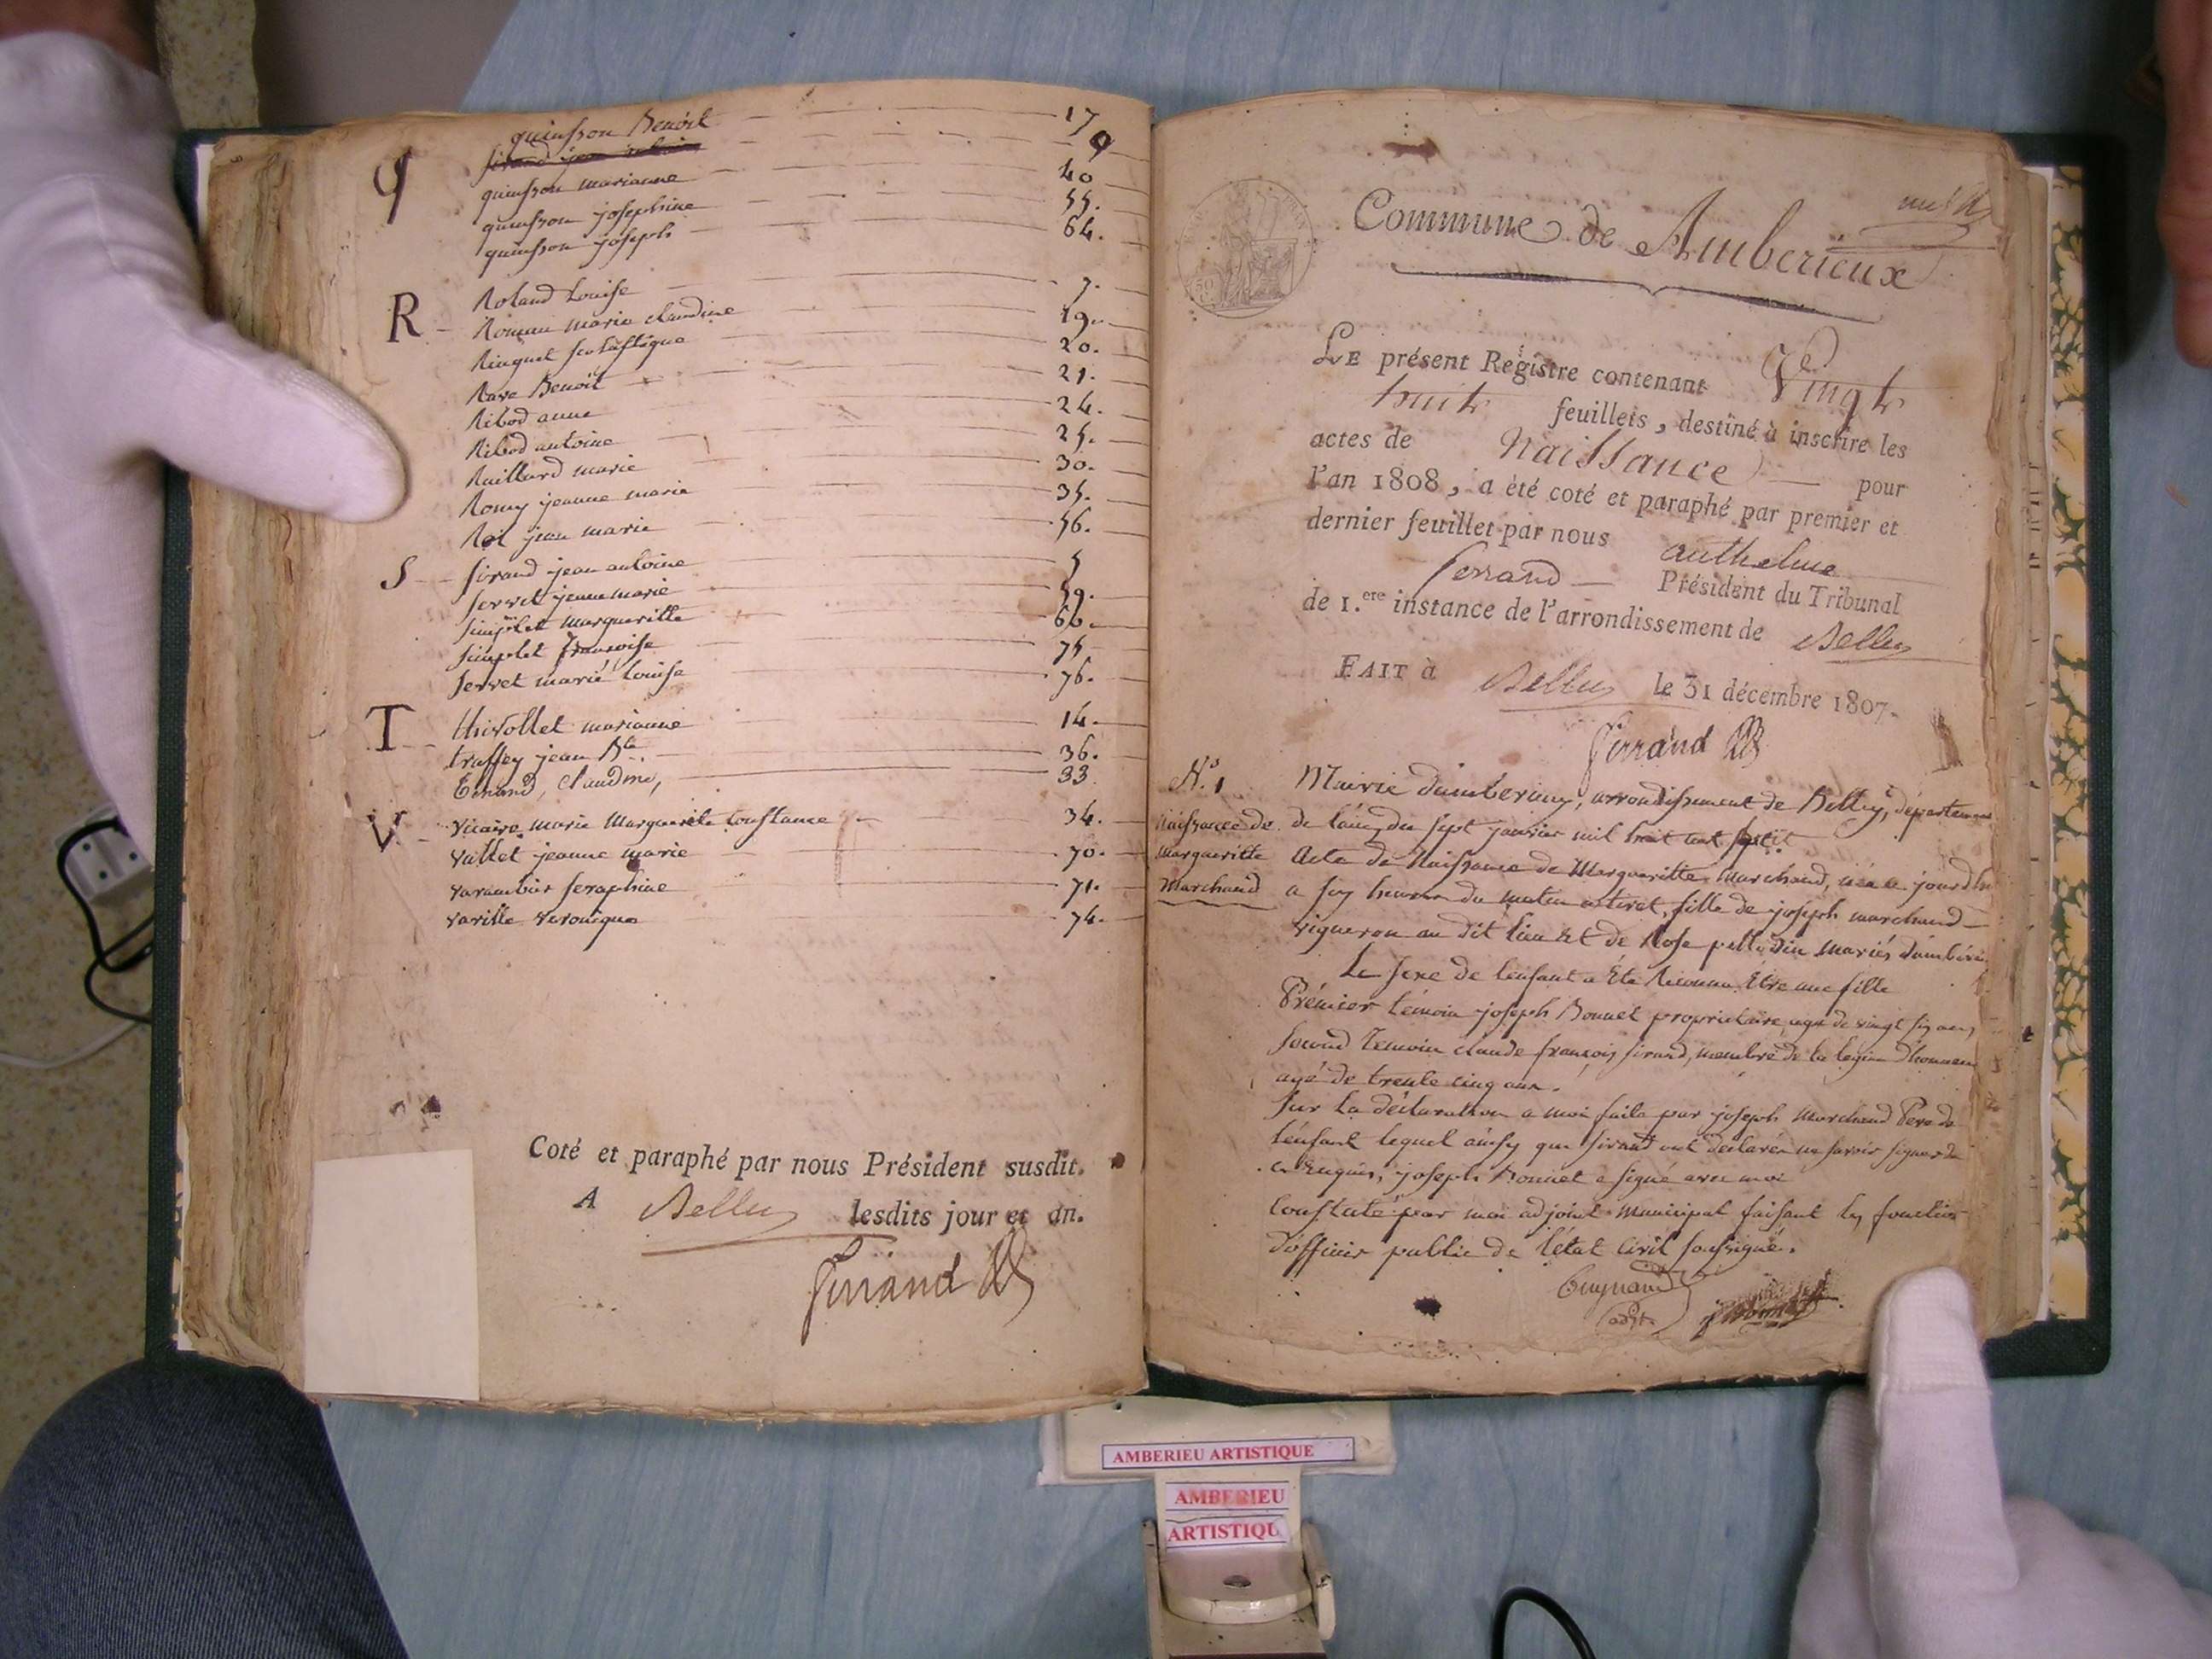 quinsson Benoit 17
Q 9
quinsson marianne 40
quinsson josephine 55.
quinsson joseph 64.
R Roland Louise 7.
Roman marie claudine 19.
Ringuet scolastique 20.
Rave Benoit 21.
Ribod anne 24.
Ribod antoine 25.
Raillard marie 30.
Romy jeanne marie 35.
Roi jean marie 56.
S Sirand jean antoine 5
Servet jeanne marie 59.
Simplet margueritte 66.
Simplet francoise 75
Servet marie louise 76.
T thivollet marianne 14.
truffey jean Bte 36.
Tenand, claudine, 33.
V Vicaire marie Marguerite Constance 34.
vallet jeanne marie 70.
varambier seraphine 71.
variller veronique 74.
Coté et paraphé par nous Président susdit.
A Belley lesdits jour et an.
Ferrand
Commune de Amberieux
LE présent Registre contenant Vingt
huit feuillets, destiné à inscrire les
actes de Naissance pour
l'an 1808, a été coté et paraphé par premier et
dernier feuillet par nous Anthelme
Ferrand Président du Tribunal
de 1.ere instance de l'arrondissement de Belley
FAIT à Belley le 31 décembre 1807.
Ferrand
N.º 1 Mairie d'amberieux, arrondissement de Belley, département
Naissance de de l'ain, du sept janvier mil huit cent
Margueritte Acte de Naissance de Margueritte Marchand, née
Marchand a six heures du matin a tiret, fille de joseph marchand
vigneron au dit lieu et de Rose mariés
Le sexe de l'enfant a Été Reconnu Être une fille
Prémier témoin joseph Bonnet propriétaire agé de vingt six ans,
Second Temoin claude françois Sirand, membre de la légion d'honneur
agé de trente cinq ans.
Sur la déclaration a moi faite par joseph Marchand Pere de
l'énfant lequel ainsy que Sirand ont déclarés ne savoir signer de
ce Enquis, joseph Bonnet a signé avec moi
Constaté par moi adjoint municipal faisant les fonctions
d'officier public de l'état civil soussigné.
Guynand
adjt
AMBERIEU ARTISTIQUE
AMBERIEU
ARTISTIQU